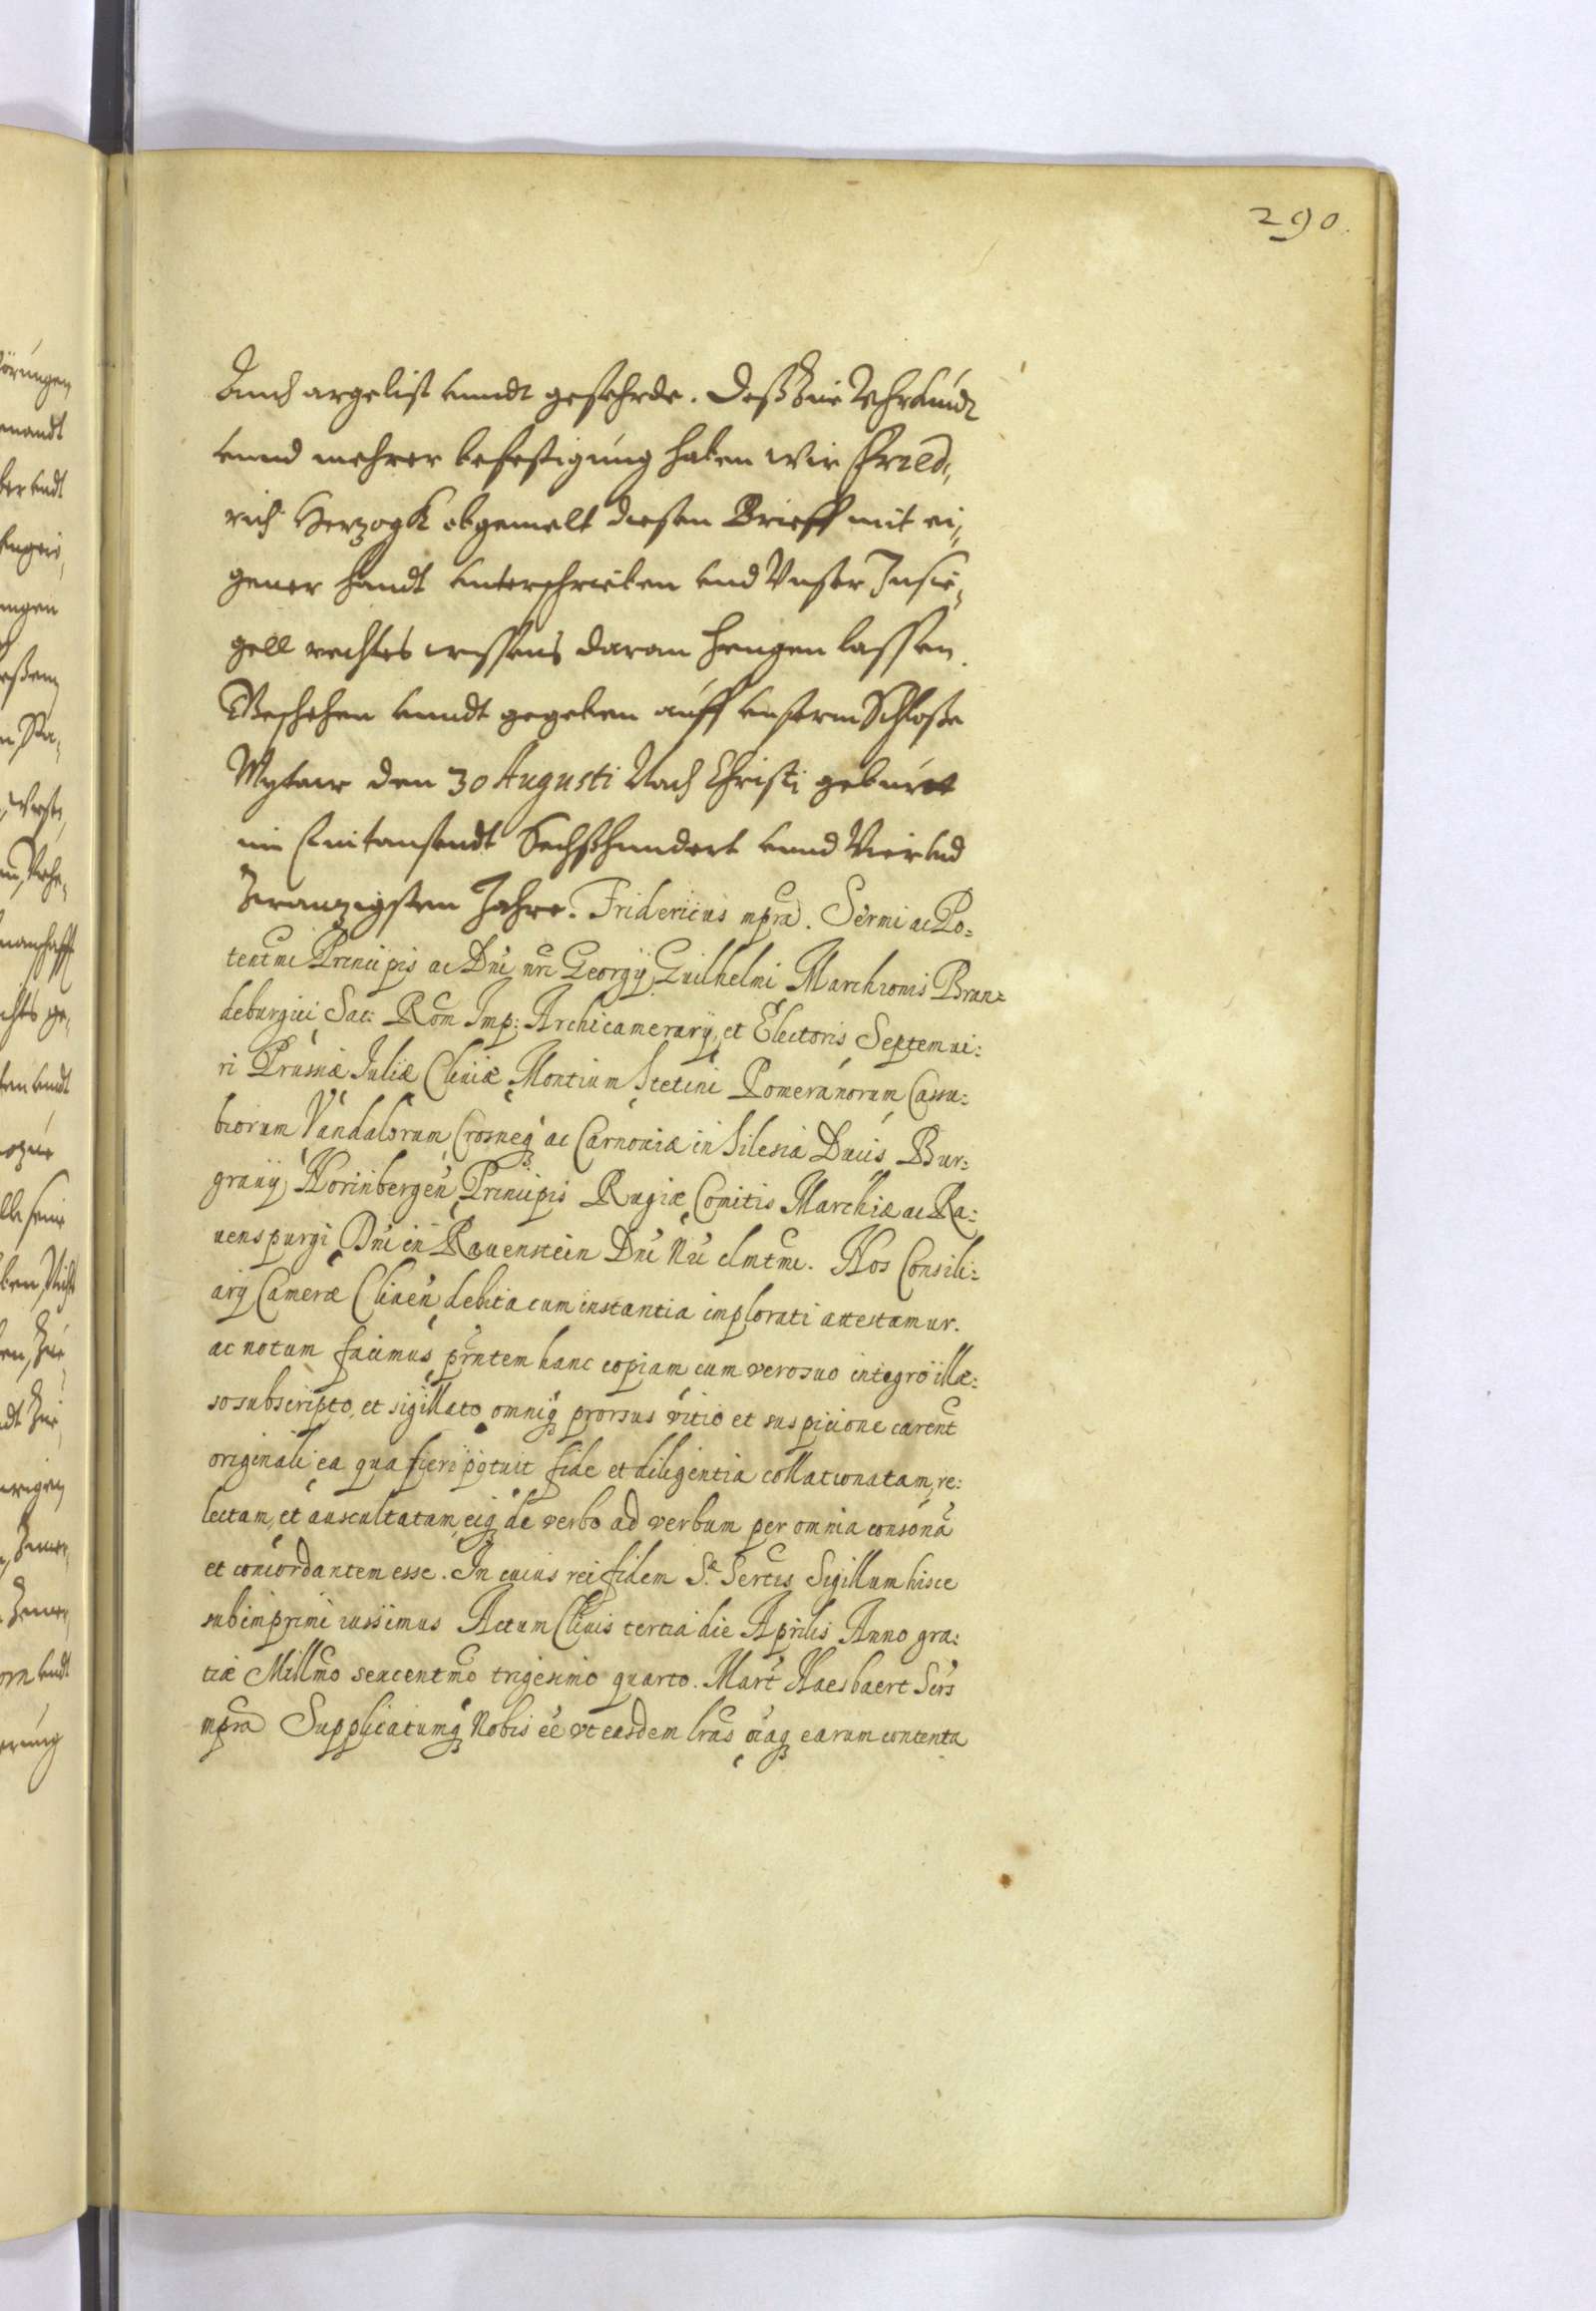 290.
argelist vnndt gefehrde. Deß zue Vhrkundt
vnnd mehrer befestigung haben wir Fried,
rich Herzogk obgemelt diesen Brieff mit ei,
gener handt vnterschrieben vnd Vnser Insie,
gell rechtes wissens daran hengen lassen.
Geschehen vnndt gegeben auff vnserm Schloße
Mytaw den 30 Augusti Nach Christi geburt
im Eintausendt Sechßhundert vnnd Vier vnd
Zwanzigsten Jahre. Fridericus mpra. Sermi ac Po:
tentmi Principis ac Dni nri Georgij Guilhelmi Marchionis Bran:
deburgici Sac: Rom Imp: Archicamerarij, et Electoris Septemui:
ri Prussiæ Iuliæ Cliuiæ Montium Stetini Pomeranorum Cassu:
biorum Vandalorum Crosneq ac Carnouiæ in Silesia Ducis Bur:
grauij Norinbergen Principis Rugiæ Comitis Marchiæ ac Ra:
uenspurgi Dni in Rauenstein Dni Nri clmtmi. Nos Consili:
arij Cameræ Cliuen debita cum instantia implorati attestamur.
ac notum facimus prntem hanc copiam cum vero suo integro illæ:
so subscripto, et sigillato omniq prorsus vitio et suspicione carent
originali ea qua fieri potuit fide et diligentia collationatam, re:
lectam, et auscultatam, eiq de verbo ad verbum per omnia consonã
et concordantem esse. In cuius rei fidem Sæ Sertis Sigillum hisce
subimprimi iussimus Actum Cliuis tertia die Aprilis Anno gra:
tiæ Millmo sexcentmo trigesimo quarto. Mart Haesbaert Scrs
mpra Supplicatumq Nobis eë vt easdem lras oiaq earum contenta